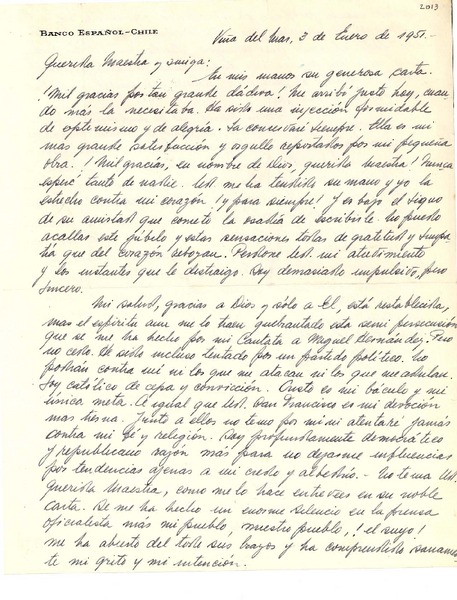 2013
BANCO ESPAÑOL-CHILE
Viña del Mar, 3 de Enero de 1951.-
Querida Maestra y amiga:
En mis manos su generosa carta.
¡Mil gracias por tan grande dádiva! Me arribó justo hoy, cuan-
do más la necesitaba. Ha sido una inyección formidable
de optimismo y de alegría. La conservaré siempre. Ella es mi
mas grande satisfacción y orgullo reportados por mi pequeña
obra. ¡Mil gracias, en nombre de Dios, querida Maestra! Nunca
esperé tanto de nadie. Ud. me ha tendido su mano y yo la
estrecho contra mi corazón ¡y para siempre! Y es bajo el signo
de su amistad que cometo la osadía de escribirle. No puedo
acallar este júbilo y estas sensaciones todas de gratitud y simpa-
tía que del corazón rebozan. Perdone Ud. mi atrevimiento
y los instantes que le distraigo. Soy demasiado impulsivo, pero
sincero.
Mi salud, gracias a Dios y sólo a El, está restablecida,
mas el espíritu aun me lo traen quebrantado esta semi persecusión
que se me ha hecho por mi Cantata a Miguel Hernández. Pero
no cedo. He sido incluso tentado por un partido político. No
podrán contra mi ni los que me atacan ni los que me adulan.
Soy católico de cepa y convicción. Cristo es mi báculo y mi
única meta. A igual que Ud. San Francisco es mi devoción
mas tierna. Junto a ellos no temo por mi ni atentaré jamás
contra mi fé y religión. Soy profundamente democrático
y republicano razón más para no dejarme influencias
por tendencias ajenas a mi credo y albedrío.- No tema Ud.
Querida Maestra, como me lo hace entrever en su noble
carta. Se me ha hecho un enorme silencio en la prensa
oficialista más mi pueblo nuestro pueblo, ¡el suyo!
me ha abierto del todo sus brazos y ha comprendido sanamen-
te mi grito y mi intención.